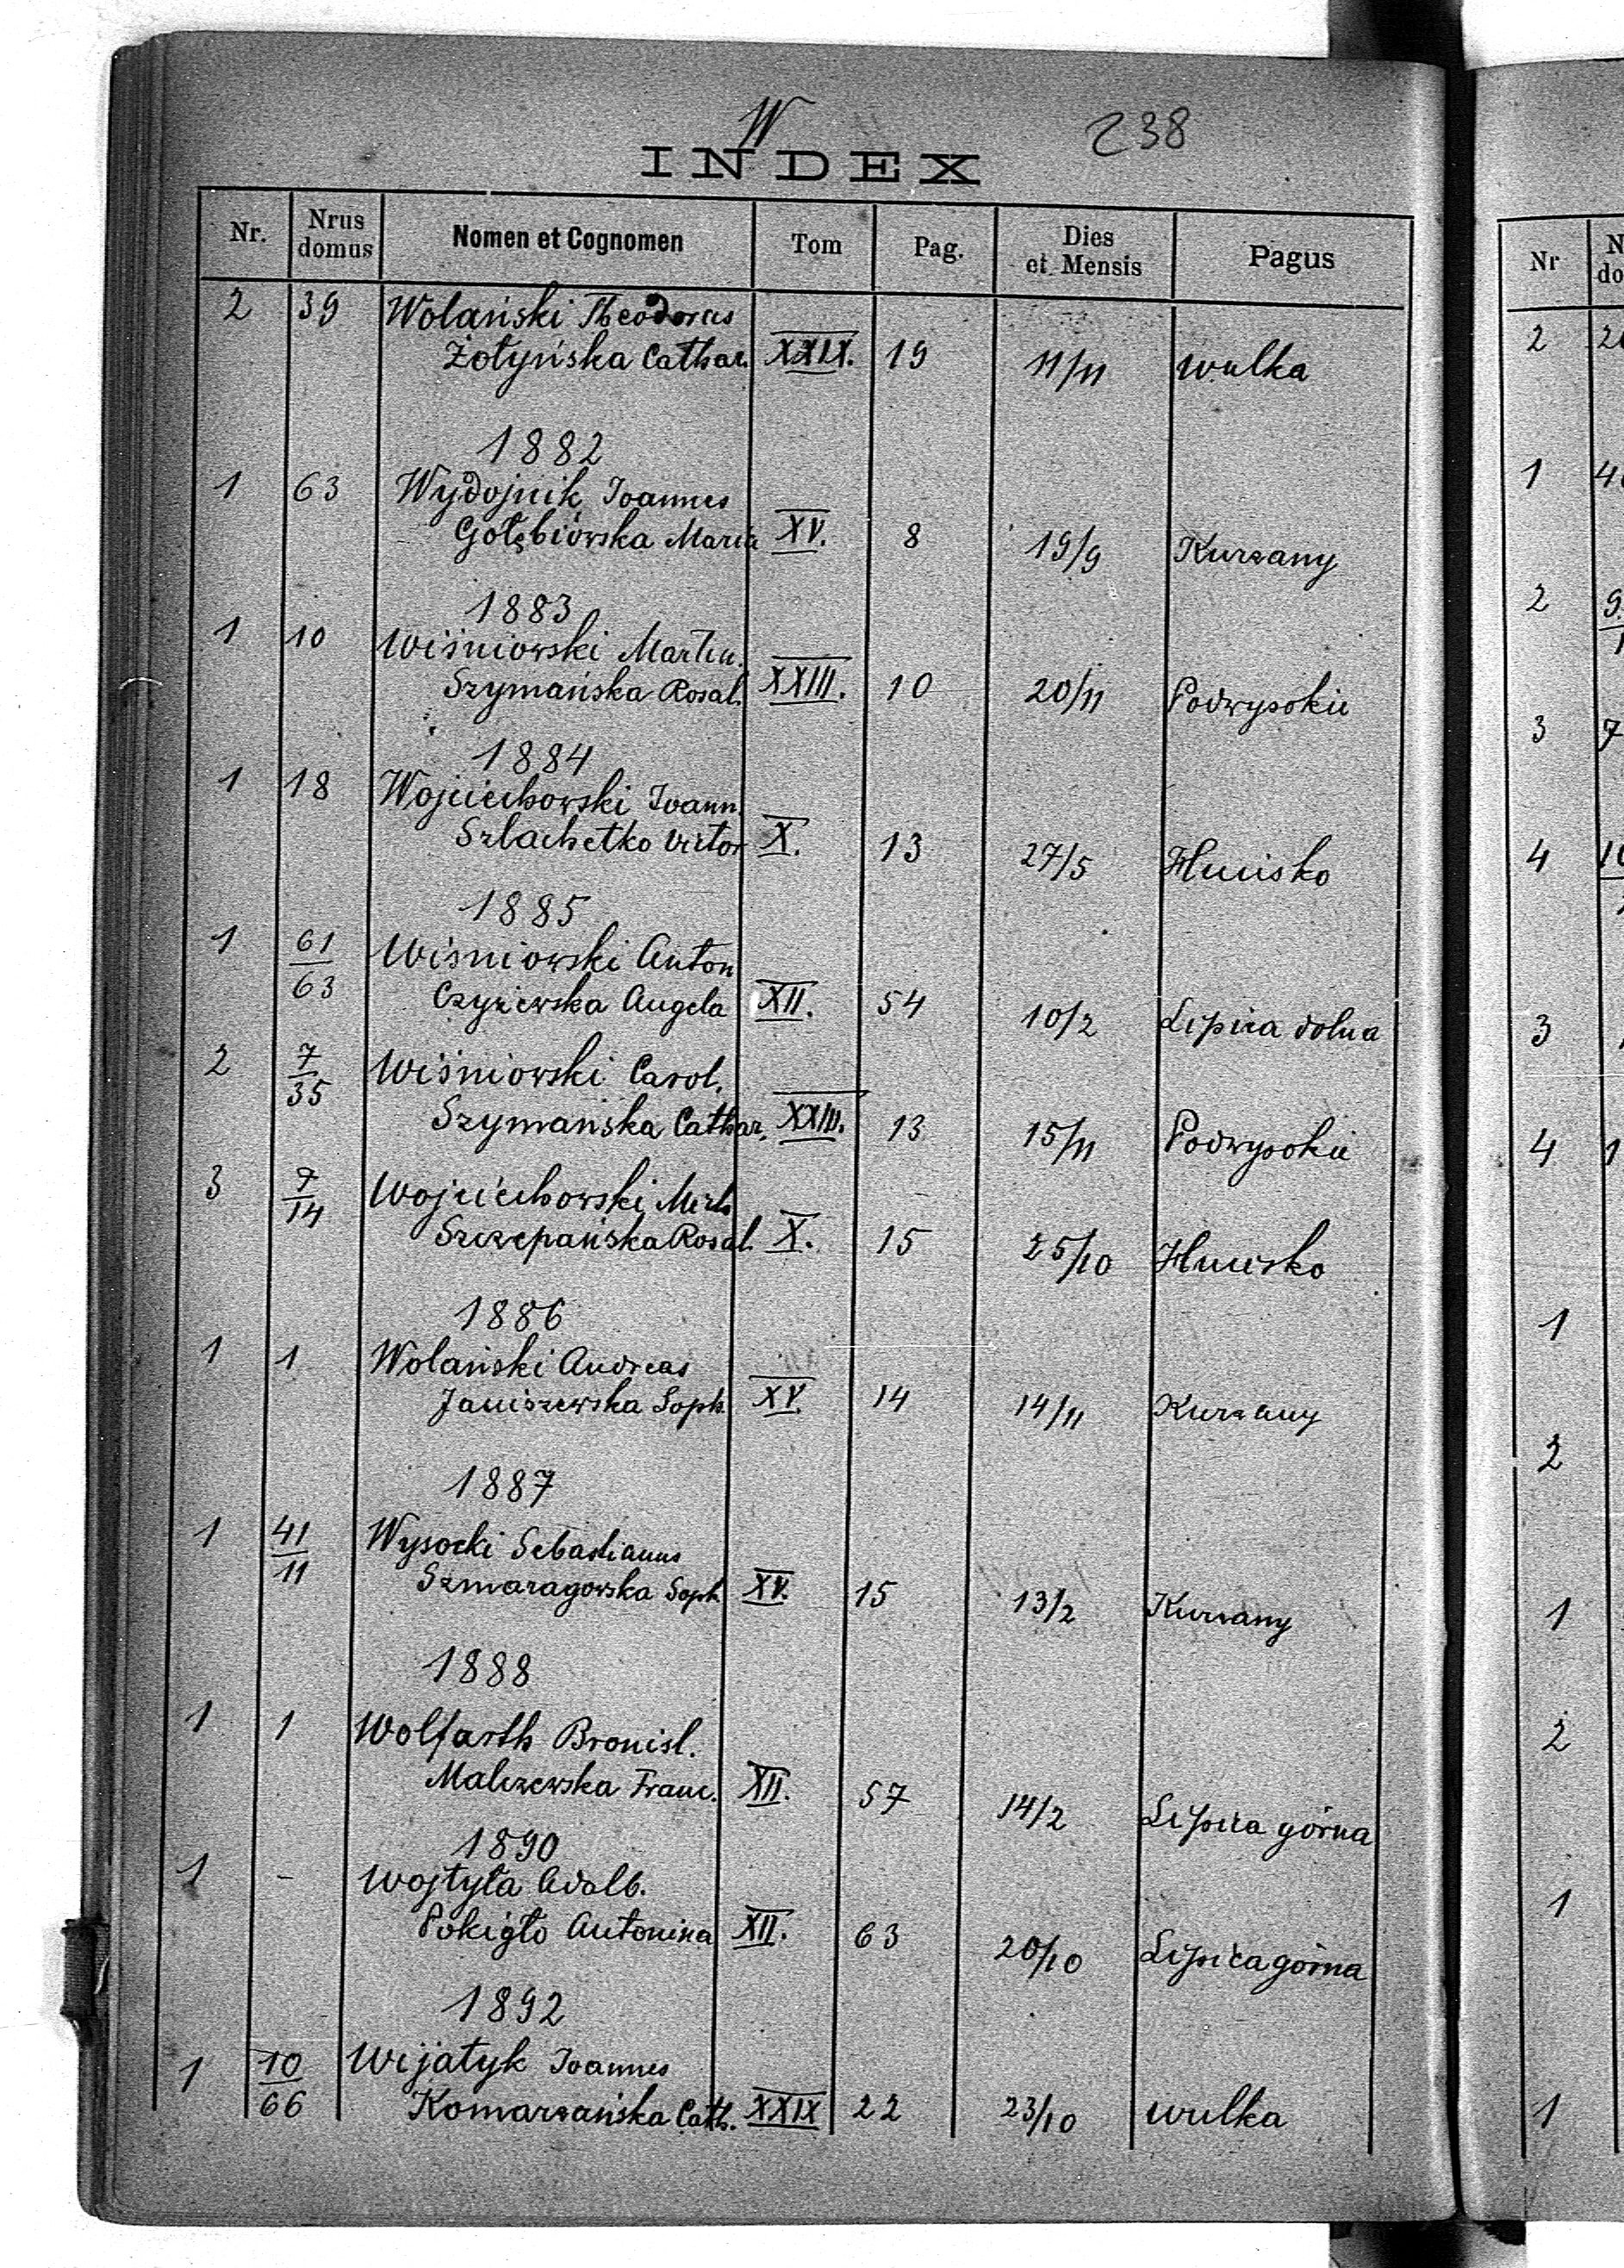 W
238
INDEX
Nr. Nrus domus Nomen et Cognomen Tom Pag. Dies et Mensis Pagus
2 39 Wolański Theodorus
Żołyńska Cathar. XXIX. 19 11/11 Wulka
1882
1 63 Wydojnik Joannes
Gołębiowska Maria XV. 8 19/9 Kurzany
1883
1 10 Wiśniowski Martin.
Szymańska Rosal. XXIII. 10 20/11 Podwysokie
1884
1 18 Wojciechowski Joann.
Szlachetko Victor X. 13 27/5 Hucisko
1885
1 61/63 Wiśniowski Anton
Czyżewska Angela XII. 54 10/2 Lipica dolna
2 7/35 Wiśniowski Carol.
Szymańska Cathar. XXIII. 13 15/11 Podwysokie
3 7/14 Wojciechowski Mich
Szczepańska Rosal. X. 15 25/10 Hucisko
1886
1 1 Wolański Andreas
Janiszewska Soph. XV. 14 14/11 Kurzany
1887
1 41/11 Wysocki Sebastianus
Szmaragowska Soph. XV. 15 13/2 Kurzany
1888
1 1 Wolfarth Bronisl.
Malczewska Franc. XII. 57 14/2 Lipica górna
1890
1 - Wojtyła Adalb.
Antonina XII. 63 20/10 Lipica górna
1892
1 10/66 Wijatyk Joannes
Komarzańska Cath. XXIX 22 23/10 Wulka
Nr
2
1 4
2 9
3 7
4
3
4 1
1
2
1
2
1
1